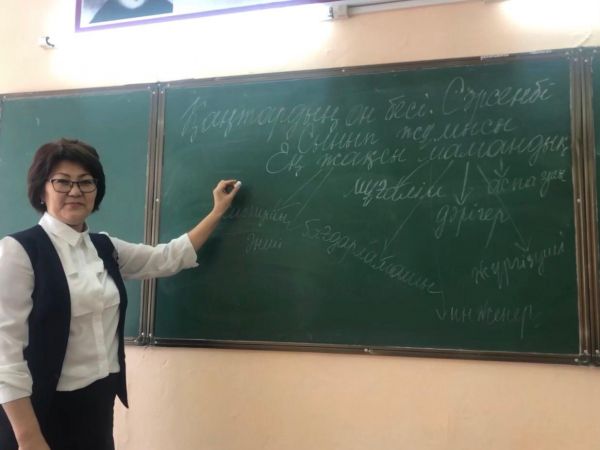 Қаңтардың он бесі. Сәрсенбі
Сынып жұмысы
Ең жақсы мамандық
мұғалім
аспазшы
дәрігер
әнші
бағдарламашы
жүргізуші
инженер